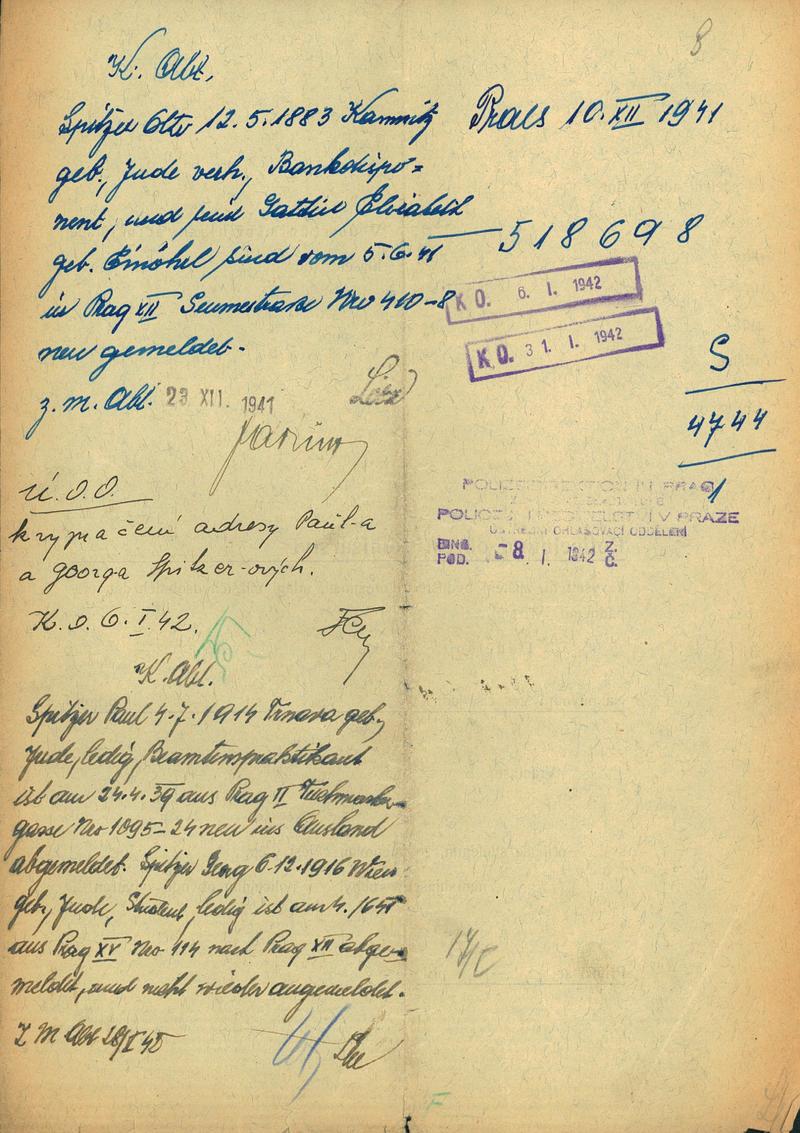 8
K. Abt.
Spitzer Otto 12.5.1883 Kamnitz
Praes 10. XII 1941
geb., Jude verh., Bankdispo=
nent, und seine Gattin Elisabeth
518698
geb. sind vom 5.6.41
in Prag XII Seumestrasse Nro 410-8
K.O. 6. I. 1942
K.O. 31. I. 1942
neu gemeldet.
S
z. m. Abt. 23 XII. 1941
4744
1
Ú.O.O.
POLIZEIDIREKTION IN PRAG
POLICEJNÍ ŘEDITELSTVÍ V PRAZE
ÚSTŘEDNÍ OHLAŠOVACÍ ODDĚLENÍ
EING. POD. -8. I. 1942 Z. Č.
k vyznačení adresy Paul-a
a Georga Spitzer-ových.
K.O. 6. I. 42.
K. Abt.
Spitzer Paul 4.7.1914 Trnava geb.,
Jude, ledig, Beamtenpraktikant
ist am 24.4.39 aus Prag II
gasse Nro 1095-24 neu ins Ausland
abgemeldet. Spitzer Georg 6.12.1916 Wien
geb., Jude, Student, ledig ist am
aus Prag XV Nro 114 nach Prag XII abge=
meldet, und nicht wieder angemeldet.
Z M Abt